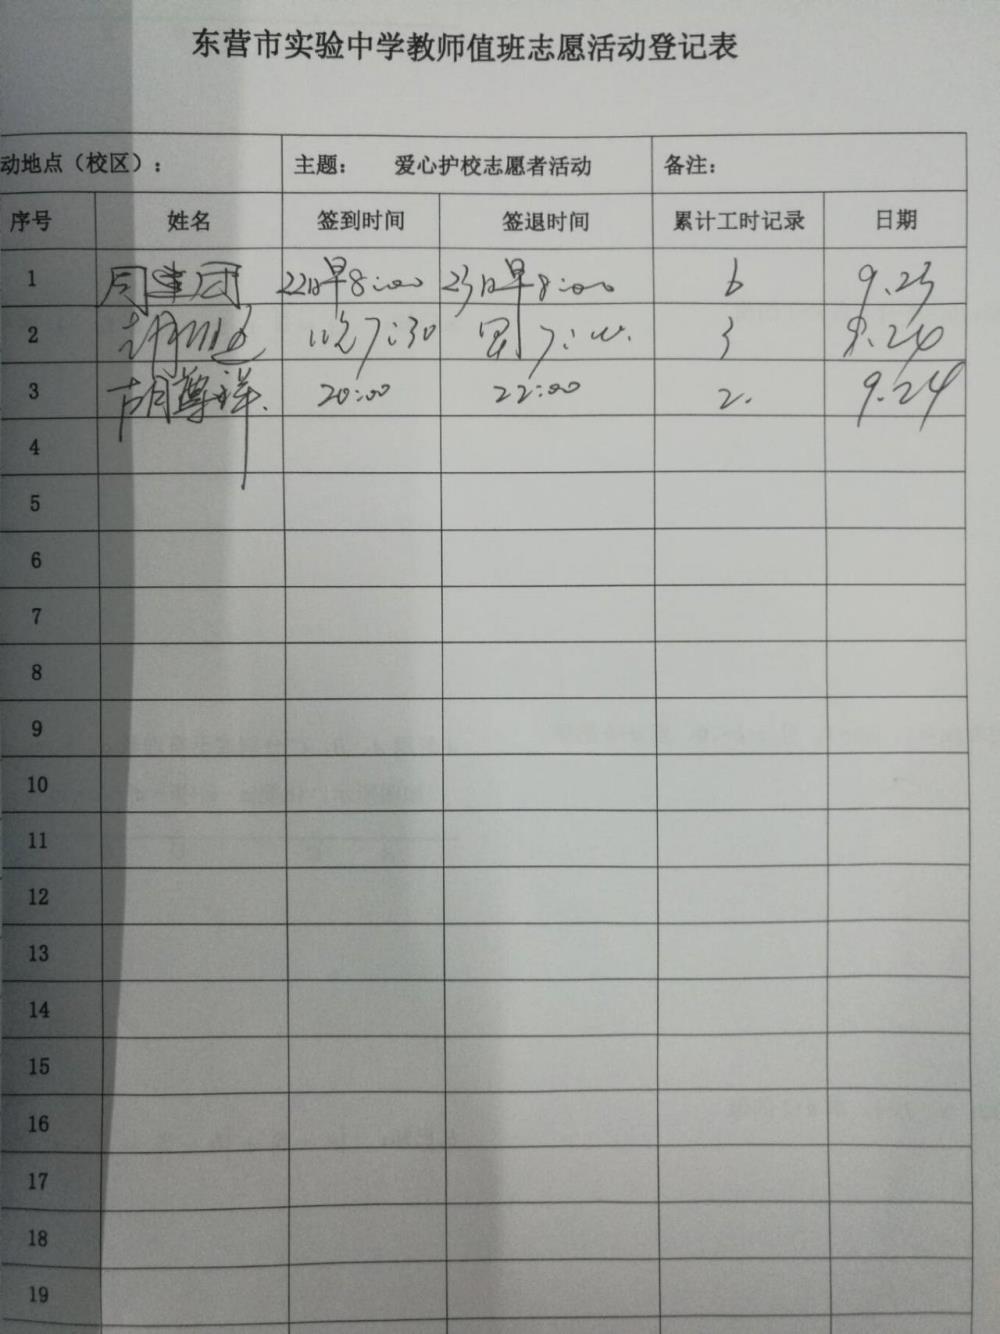 东营市实验中学教师值班志愿活动登记表
动地点（校区）： 主题： 爱心护校志愿者活动 备注：
序号 姓名 签到时间 签退时间 累计工时记录 日期
1 周建国 22日早8:00 23日早8:00 6 9.23
2 晚7:30 7: 3 9.24
3 胡尊祥. 20:00 22:00 2. 9.24
4
5
6
7
8
9
10
11
12
13
14
15
16
17
18
19